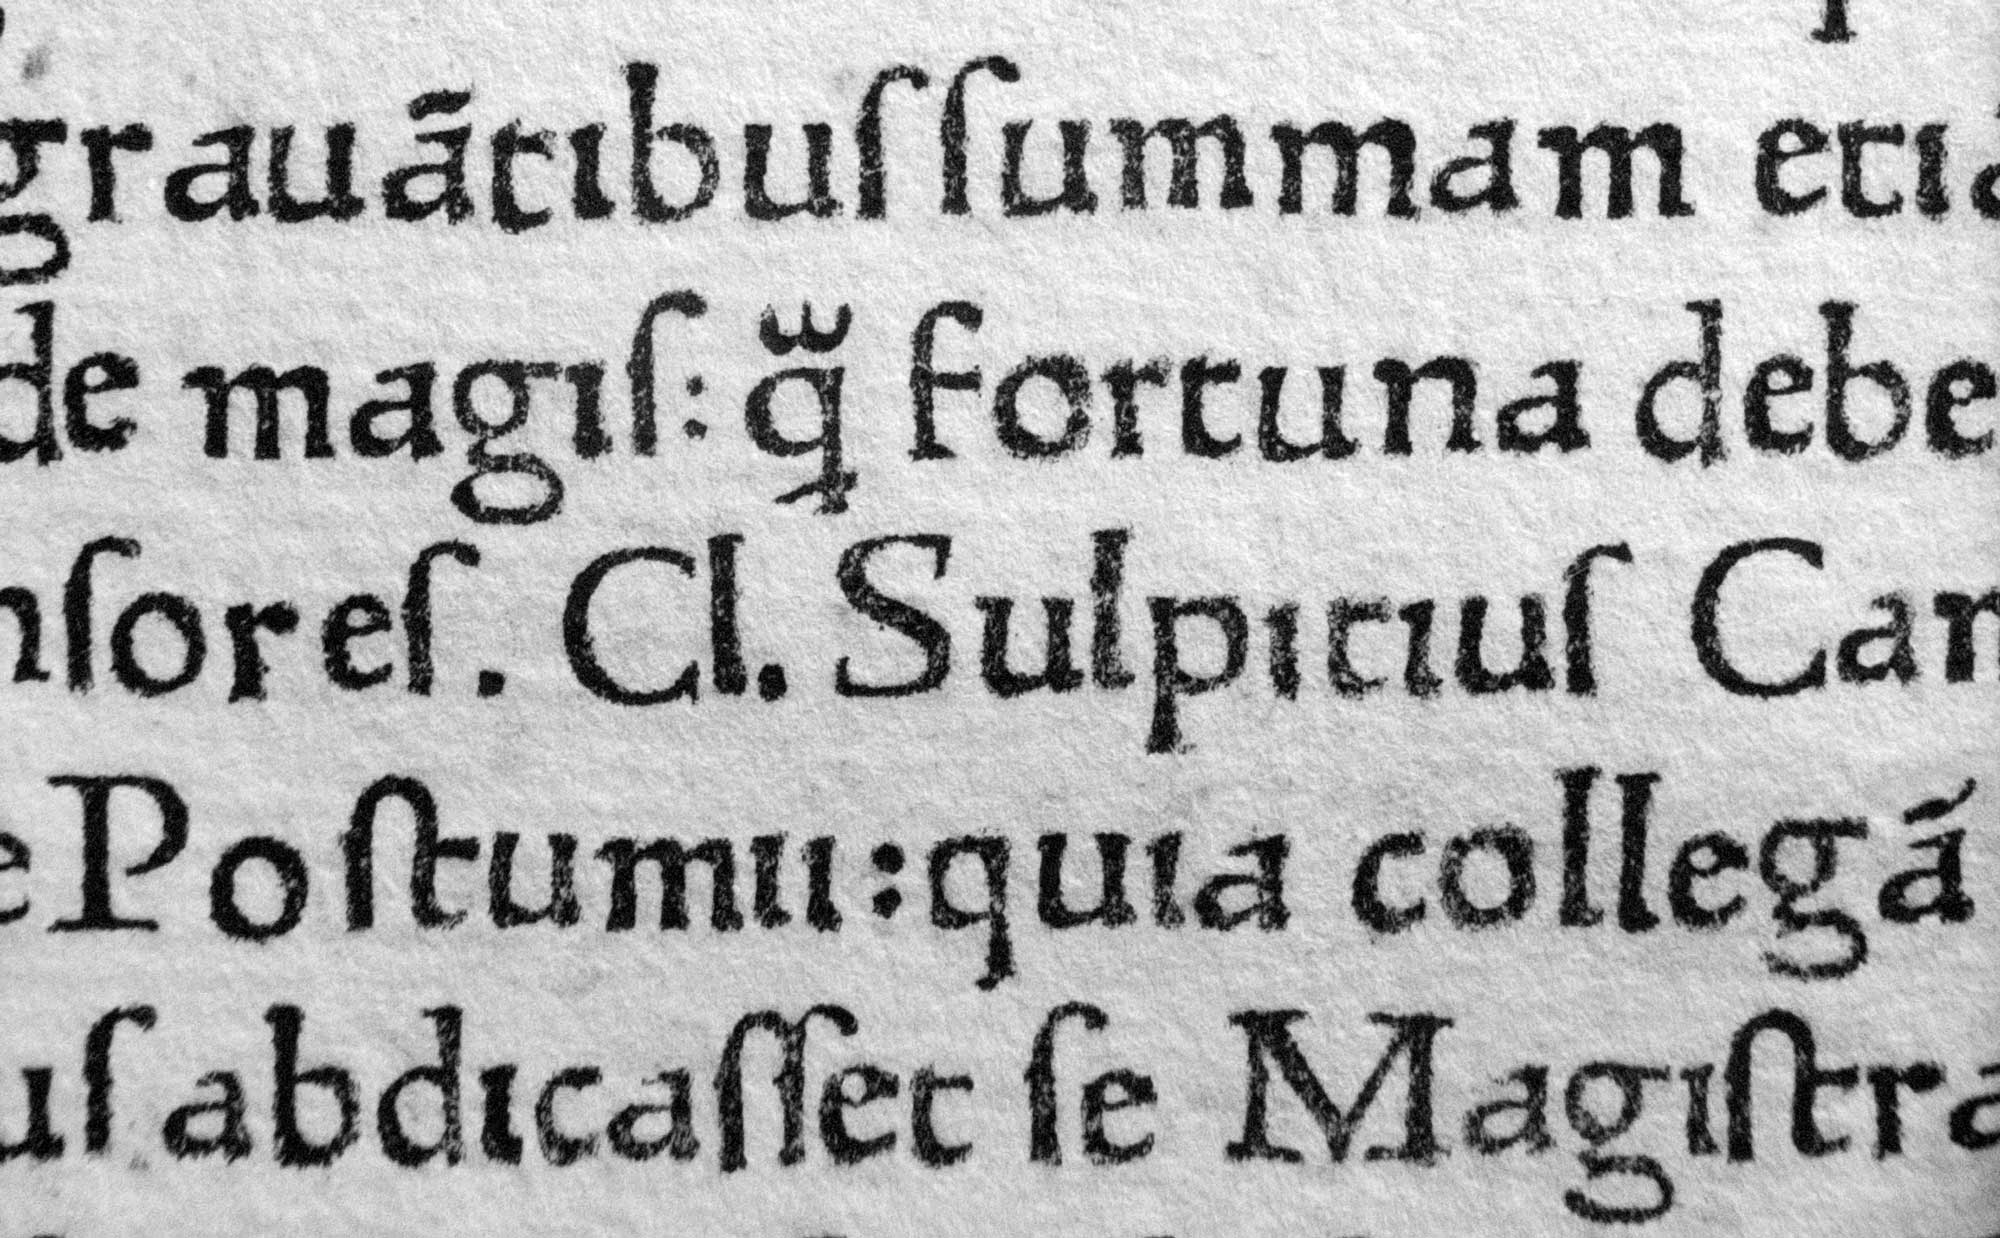 grauãtibuſ ſummam etia
de magiſ: q̃ fortuna debe
nſoreſ. Cl. Sulpitiuſ Cam
e Poſtumii: quia collegã
uſ abdicaſſet ſe Magiſtra